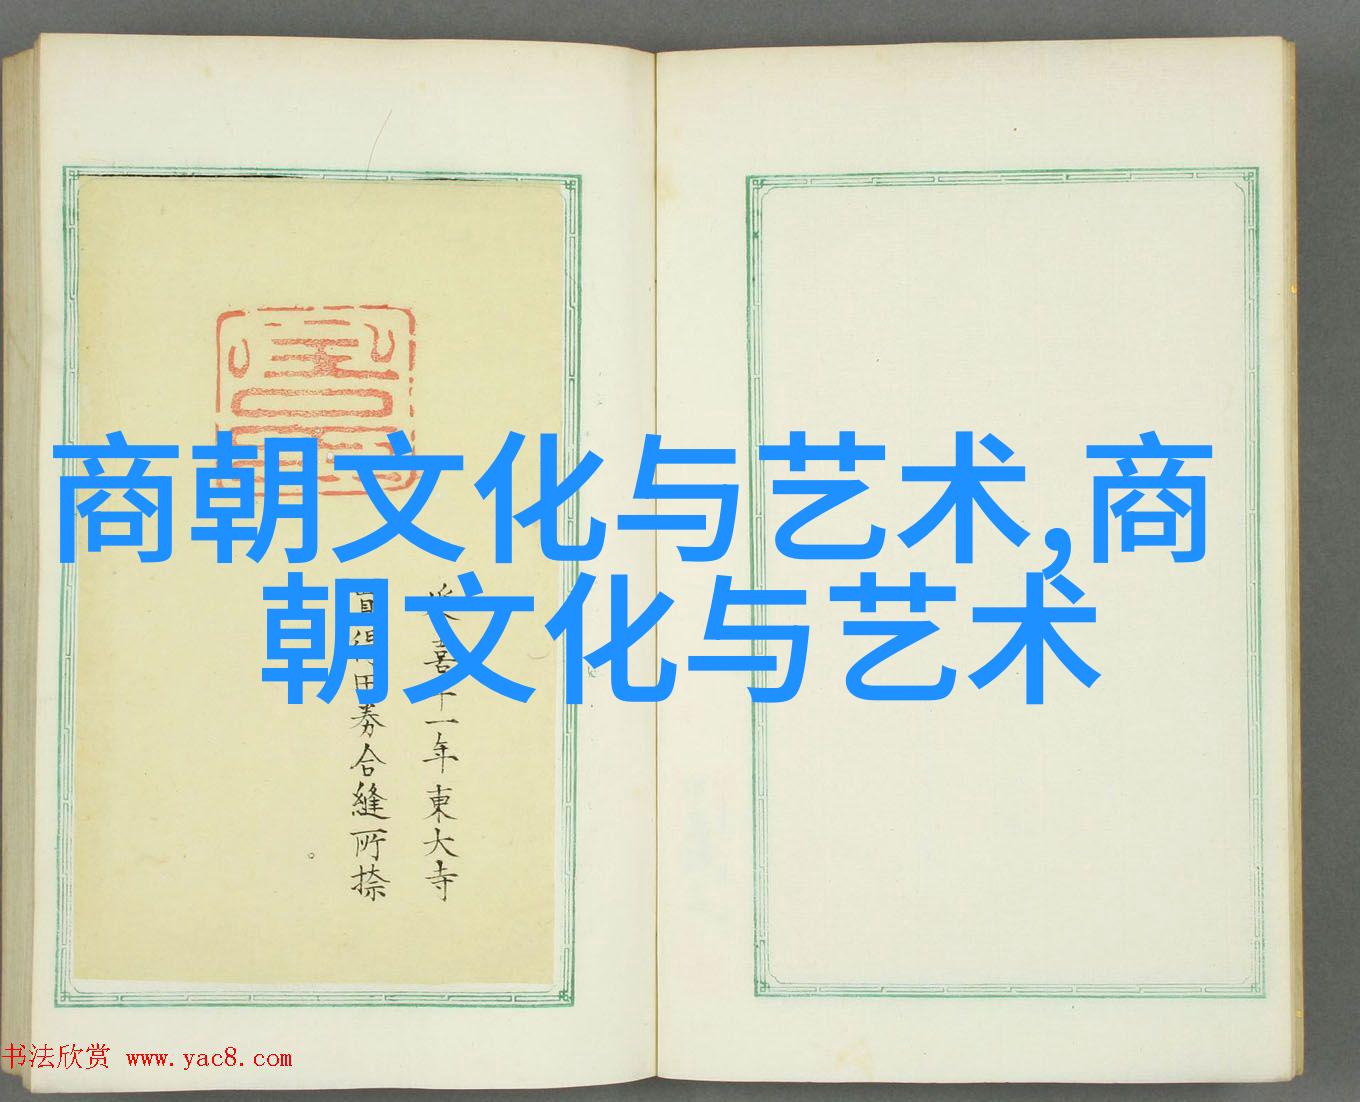 商朝文化与艺术,商
朝文化与艺术
延喜十一年東大寺
田券合縫所捺
书法欣赏 www.yac8.com